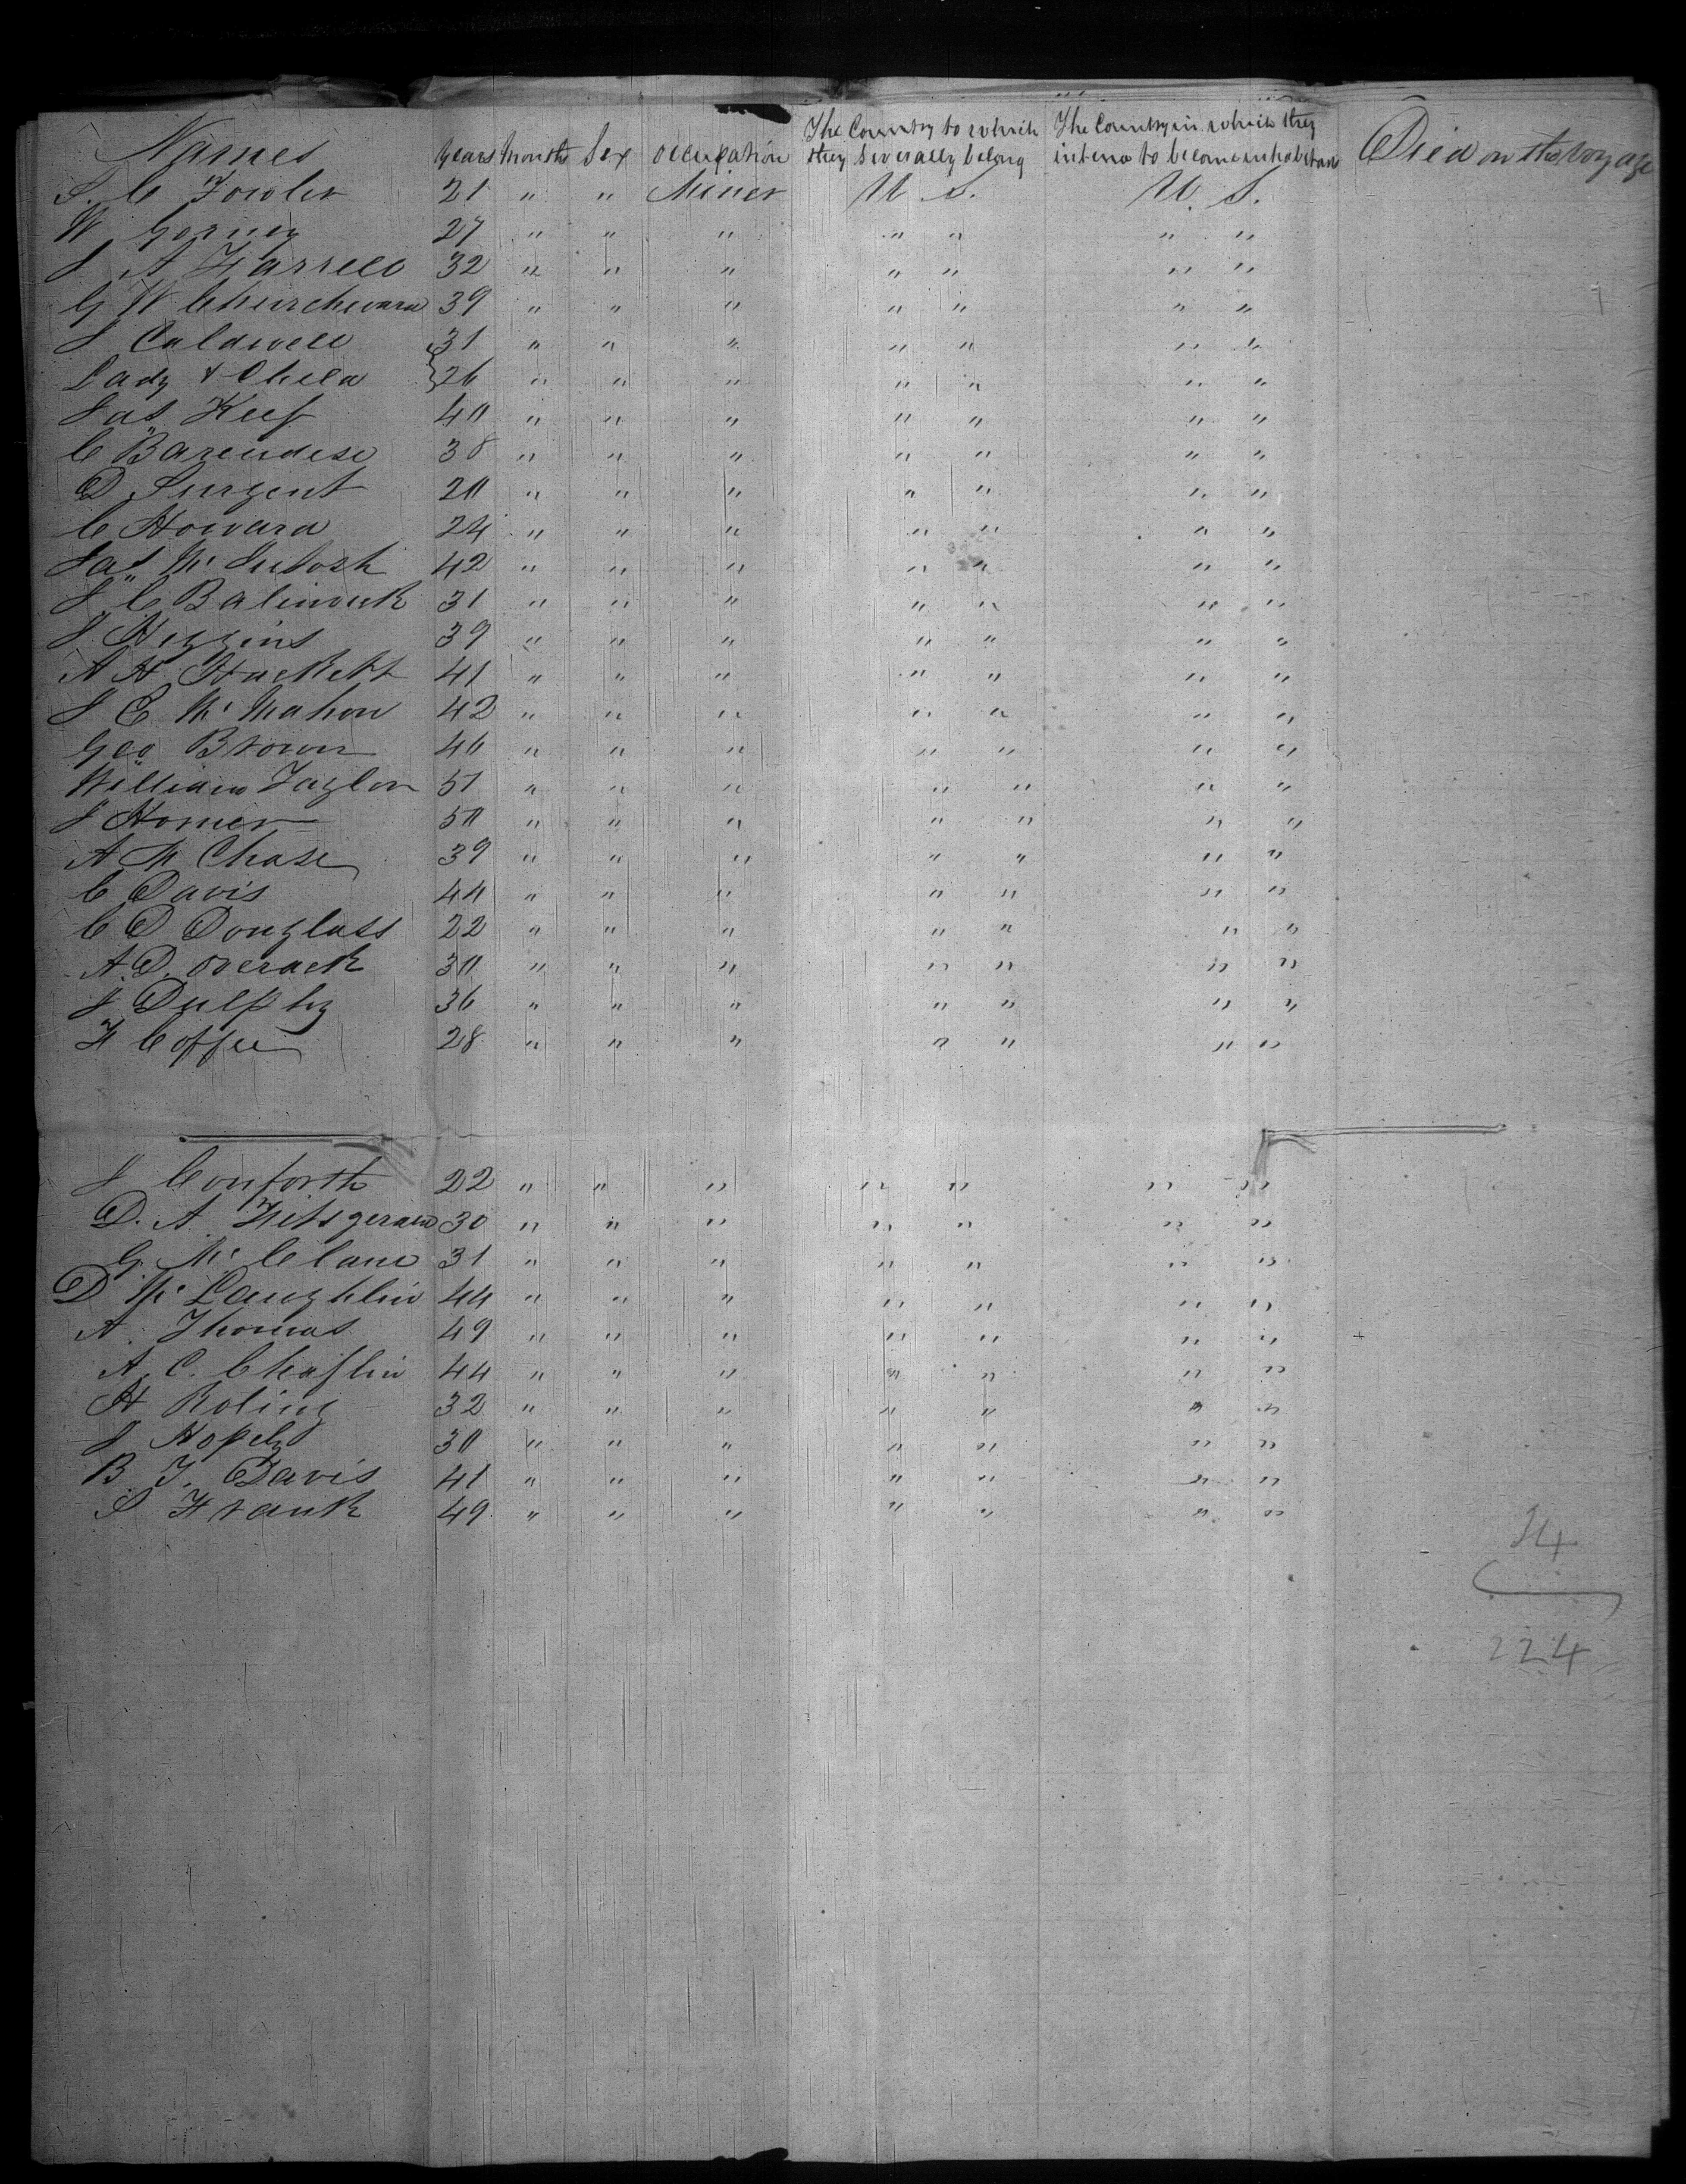 Names Years Months Sex Occupation The Country to which they Severally belong The Country in which they intend to become inhabitants Died on the Voyage
S. C Fowler 21 " " Miner U S. U. S.
W Gorney 27 " " " " " " "
J A Farrell 32 " " " " " " "
G W Churchward 39 " " " " " " "
J Caldwell 31 " " " " " " "
Lady & Child 26 " " " " " " "
Jas Keef 40 " " " " " " "
C 38 " " " " " " "
D Surgent 20 " " " " " " "
C Howard 24 " " " " " " "
Jas Mc Intosh 42 " " " " " " "
J C 31 " " " " " " "
J Higgins 39 " " " " " " "
A H Hackett 41 " " " " " " "
J E Mc Mahon 42 " " " " " " "
Geo Brown 46 " " " " " " "
William Taylor 51 " " " " " " "
J Homer 50 " " " " " " "
A M Chase 39 " " " " " " "
C Davis 44 " " " " " " "
C D Douglass 22 " " " " " " "
A. D. Overack 30 " " " " " " "
J Dulphy 36 " " " " " " "
F Coffee 28 " " " " " " "
J Conforth 22 " " " " " " "
D. A Fitsgerald 30 " " " " " " "
G. Mc Clane 31 " " " " " " "
D Mc Laughlin 44 " " " " " " "
A. Thomas 49 " " " " " " "
A. C. Chaflin 44 " " " " " " "
H Roling 32 " " " " " " "
J 30 " " " " " " "
B T. Davis 41 " " " " " " "
S Frank 49 " " " " " " "
34
224